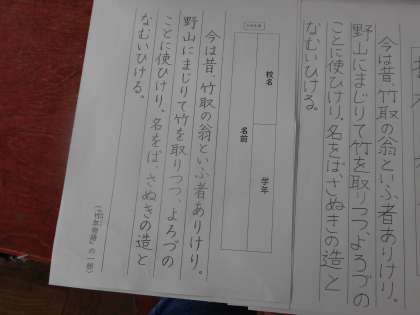 今は昔、竹取の翁といふ者ありけり。
野山にまじりて竹を取りつつ、よろづの
ことに使ひけり。名をば、さぬきの造と
なむいひける。
校名
学年
名前
今は昔、竹取の翁といふ者ありけり。
野山にまじりて竹を取りつつ、よろづの
ことに使ひけり。名をば、さぬきの造と
なむいひける。
(「竹取物語」の一部)